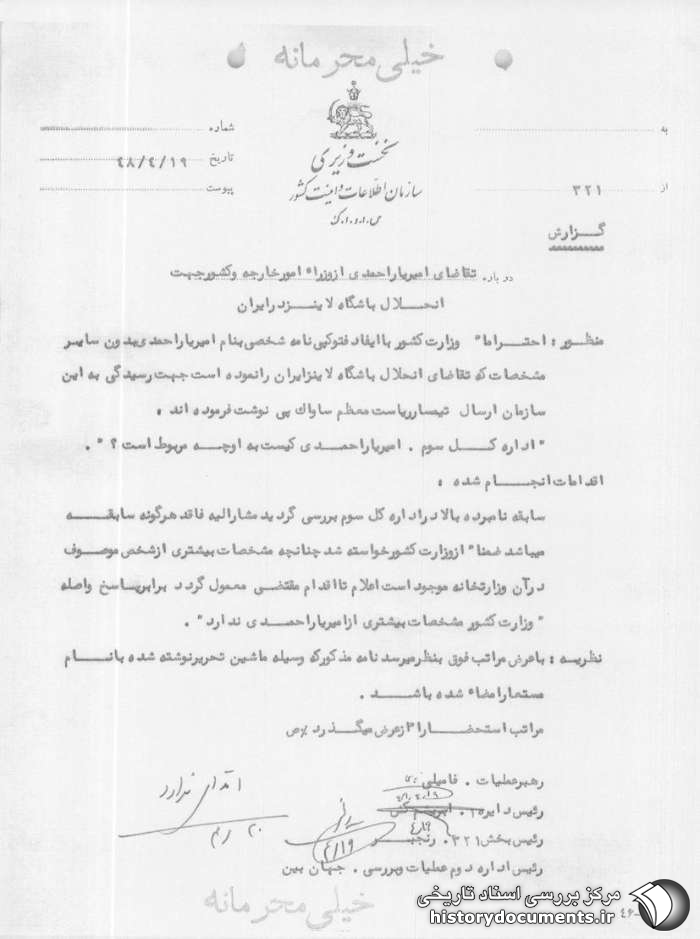 خیلی محرمانه
به
شماره
نخست وزیری
تاریخ ۴۸/۴/۱۹
سازمان اطلاعات و امنیت کشور
از ۳۲۱
پیوست
س.ا.و.ا.ک
گزارش
درباره تقاضای امیریاراحمدی ازوزراء امورخارجه وکشورجهت
انحلال باشگاه لاینزدرایران
منظور : احتراما" وزارت کشور باایفاد فتوکپی نامه شخصی بنام امیریاراحمدی بدون سایر
مشخصات که تقاضای انحلال باشگاه لاینزایران رانموده است جهت رسیدگی به این
سازمان ارسال تیمسارریاست معظم ساواک پی نوشت فرموده اند :
"اداره کل سوم . امیریاراحمدی کیست به اوچه مربوط است ؟ " .
اقدامات انجام شده :
سابقه نامبرده بالا دراداره کل سوم بررسی گردید مشارالیه فاقد هرگونه سابقه
میباشد ضمنا" ازوزارت کشورخواسته شد چنانچه مشخصات بیشتری ازشخص موصوف
درآن وزارتخانه موجود است اعلام تااقدام مقتضی معمول گردد برابرپاسخ واصله
"وزارت کشور مشخصات بیشتری ازامیریاراحمدی ندارد" .
نظریه : باعرض مراتب فوق بنظرمیرسد نامه مذکورکه وسیله ماشین تحریرنوشته شده بانام
مستعارامضاء شده باشد .
مراتب استحضارا" ازعرض میگذرد
رهبرعملیات . فامیلی
اقدامی ندارد
رئیس دایره ۱. ابریشم کش
۴/۱۹
رئیس بخش ۳۲۱. رنجبر
۴/۱۹
رئیس اداره دوم عملیات وبررسی . جهان بین
خیلی محرمانه
مرکز بررسی اسناد تاریخی
historydocuments.ir
۴۶